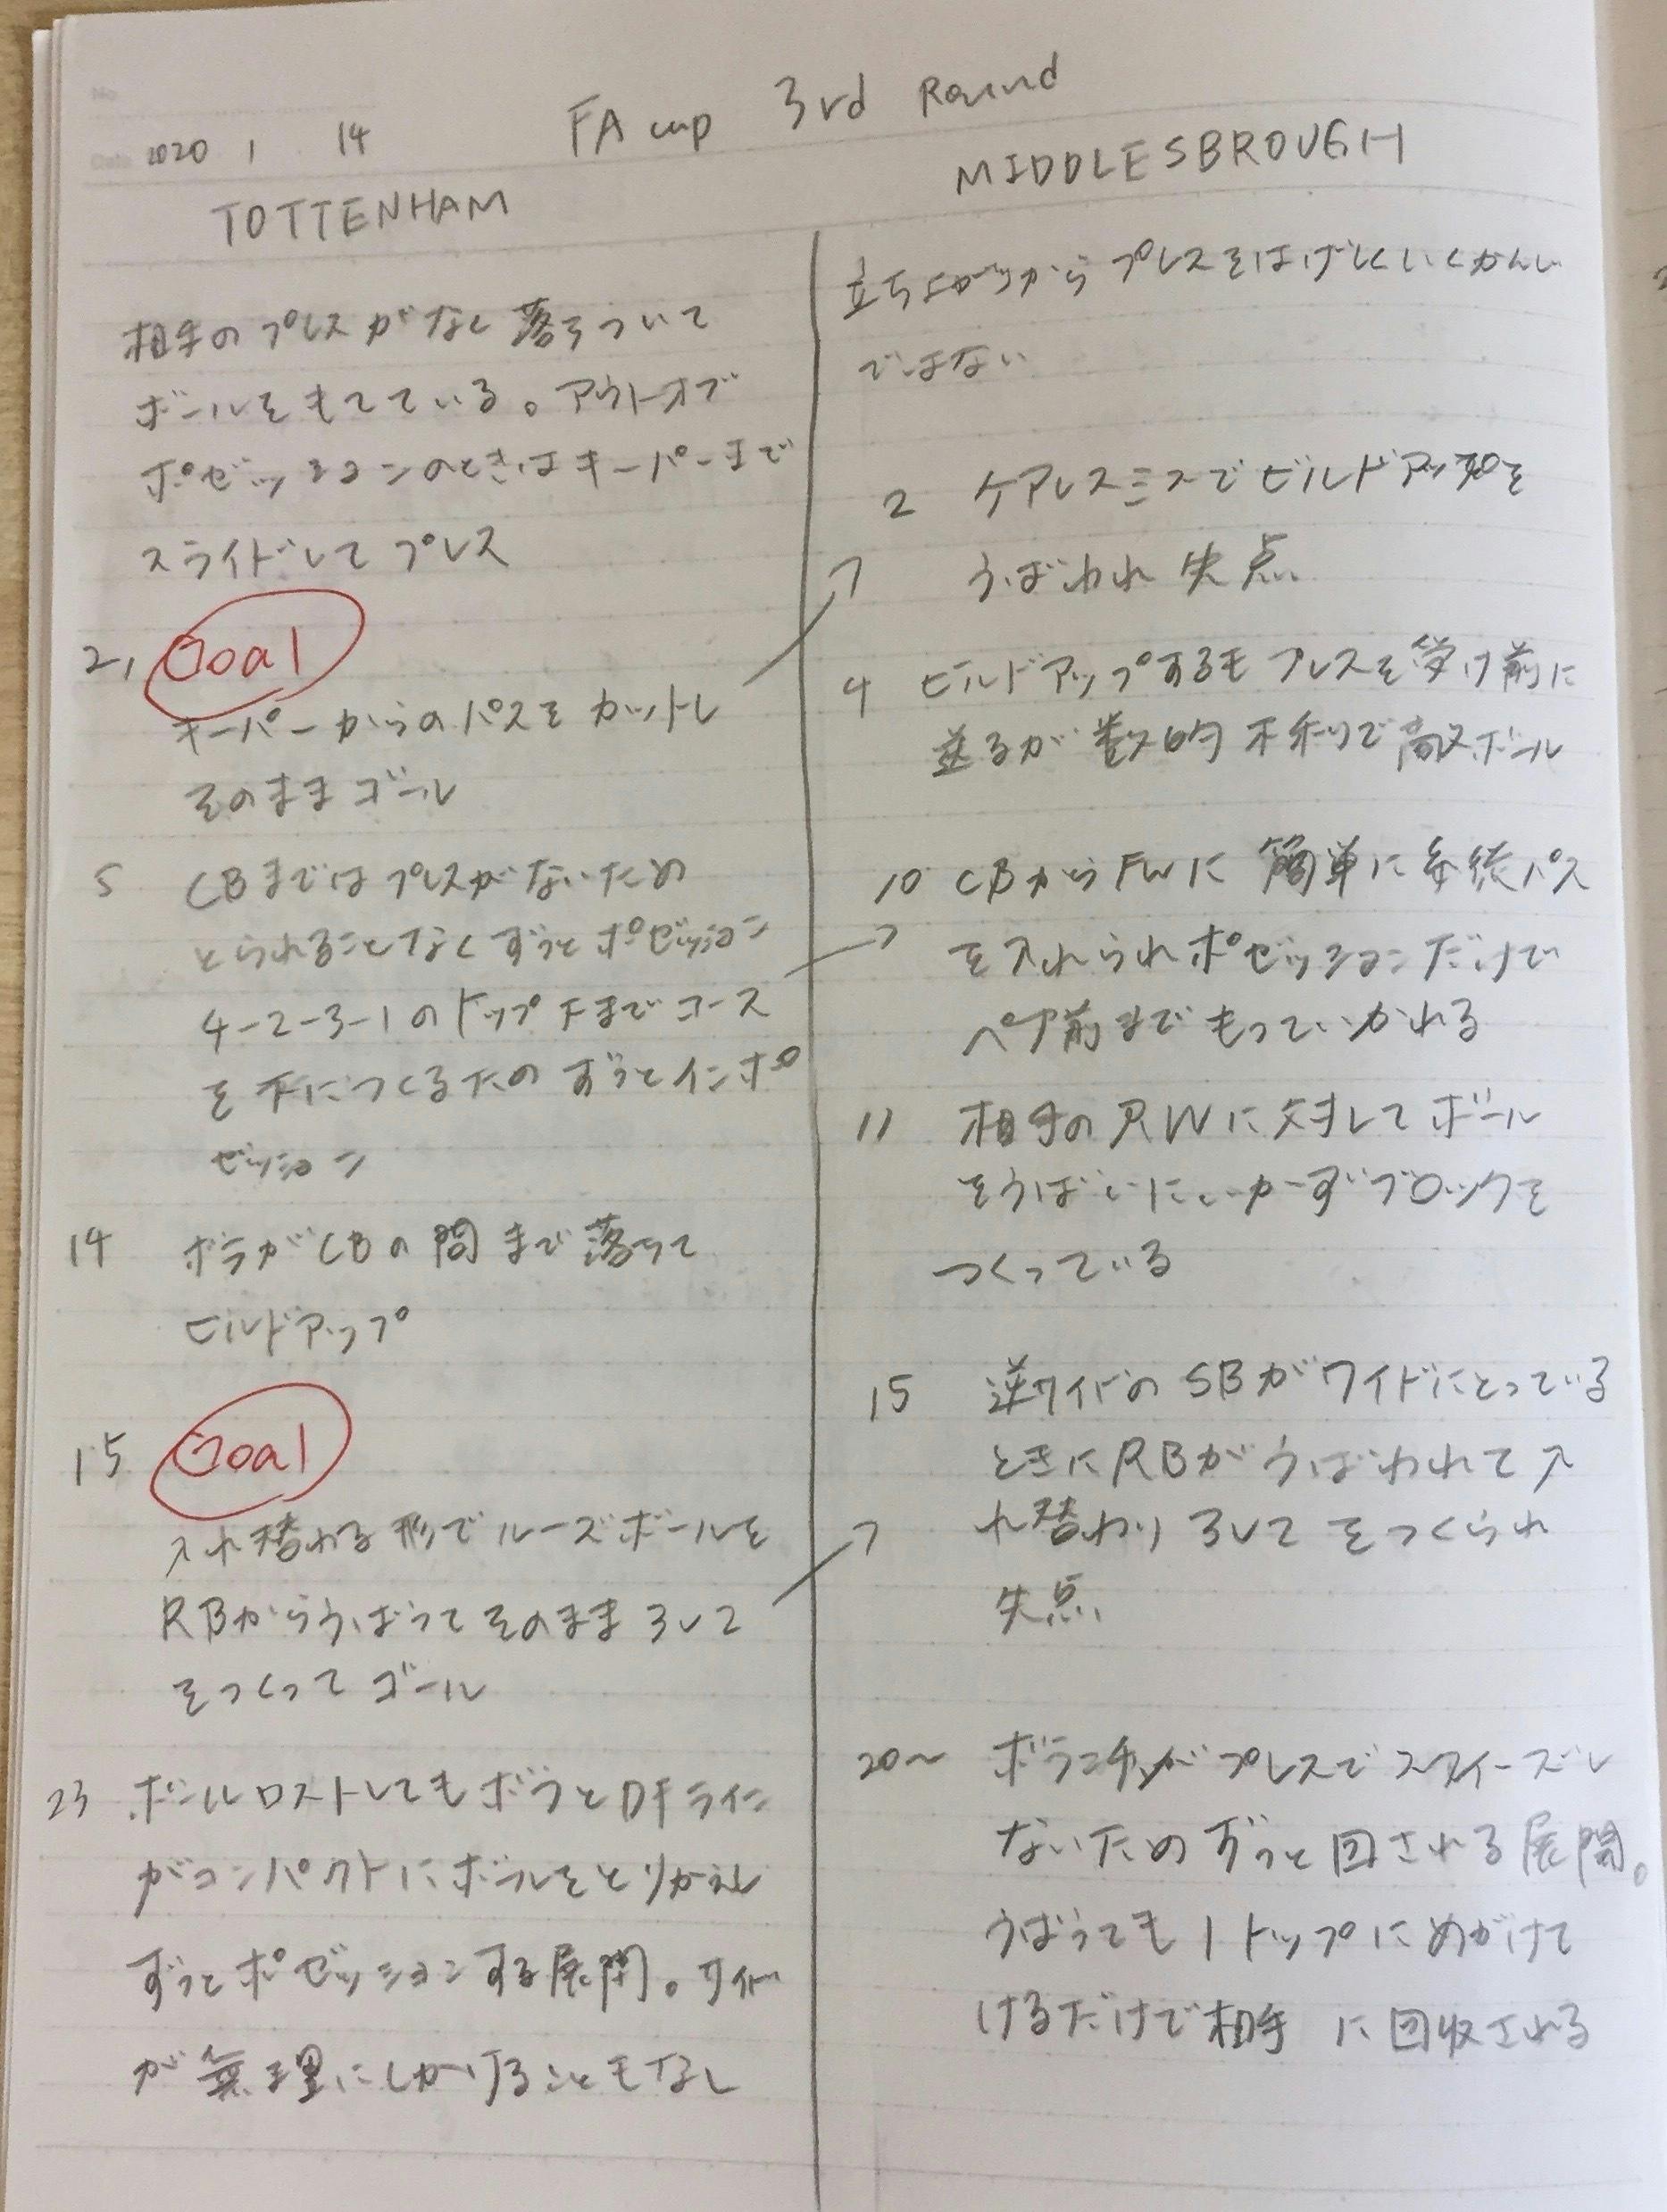 No
Date 2020 1 14
FA cup 3rd Round
TOTTENHAM
相手のプレスがなく落ちついて
ボールをもてている。アウトオブ
ポゼッションのときはキーパーまで
スライドしてプレス
2, Goal
キーパーからのパスをカットし
そのままゴール
5 CBまではプレスがないため
とられることなくずっとポゼッション
4-2-3-1のトップ下までコース
を下につくるためずっとインポ
ゼッション
14 ボラがCBの間まで落ちて
ビルドアップ
15 Goal
入れ替わる形でルーズボールを
RBからうばってそのまま3v2
をつくってゴール
23 ボールロストしてもボラとDFライン
がコンパクトにボールをとりかえし
ずっとポゼッションする展開。サイド
が無理にしかけることもなし
MIDDLESBROUGH
立ち上がりからプレスをはげしくいくかんじ
ではない
2 ケアレスミスでビルドアップを
うばわれ失点
4 ビルドアップするもプレスを受け前に
送るが数的不利で高いボール
10 CBからFWに簡単に縦パス
を入れられポゼッションだけで
ペナ前までもっていかれる
11 相手のRWに対してボール
をうばいにいかずブロックを
つくっている
15 逆サイドのSBがワイドにとっている
ときにRBがうばわれて入
れ替わり3v2をつくられ
失点
20〜 ボランチがプレスでスクイーズし
ないためずっと回される展開。
うばっても1トップにめがけて
けるだけで相手に回収される